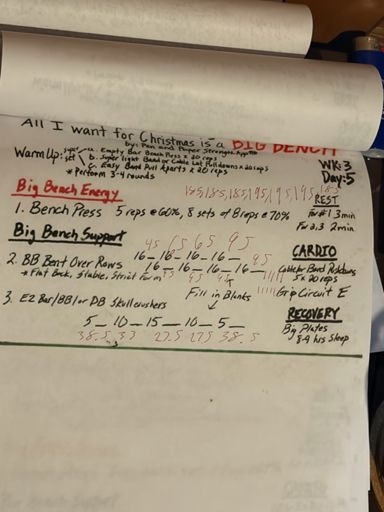 All I want for Christmas is a BIG BENCH
by: Pen and Paper Strength App
WK:3
Day:5
Warm Up: super set
a. Empty Bar Bench Press x 20 reps
b. Super light Band or Cable Lat Pulldowns x 20 reps
c. Easy Band Pull Aparts x 20 reps
*Perform 3-4 rounds
Big Bench Energy
185, 185, 185, 195, 195, 195, 185
REST
1. Bench Press 5 reps @ 60%, 8 sets of 8 reps @ 70%
For #1 3min
For 2,3 2min
Big Bench Support
45 65 65 95
2. BB Bent Over Rows
16 - 16 - 16 - 16 -
95
16 - 16 - 16 - 16 -
* Flat Back, Stable, Strict form
CARDIO
Cable or Band Pushdowns
5 x 20 reps
Grip Circuit E
3. EZ Bar/BB/or DB Skullcrushers
Fill in Blanks
5_ 10_ 15_ 10_ 5_
38.5 33 27.5 27.5 38.5
RECOVERY
Big Plates
8-9 hrs Sleep